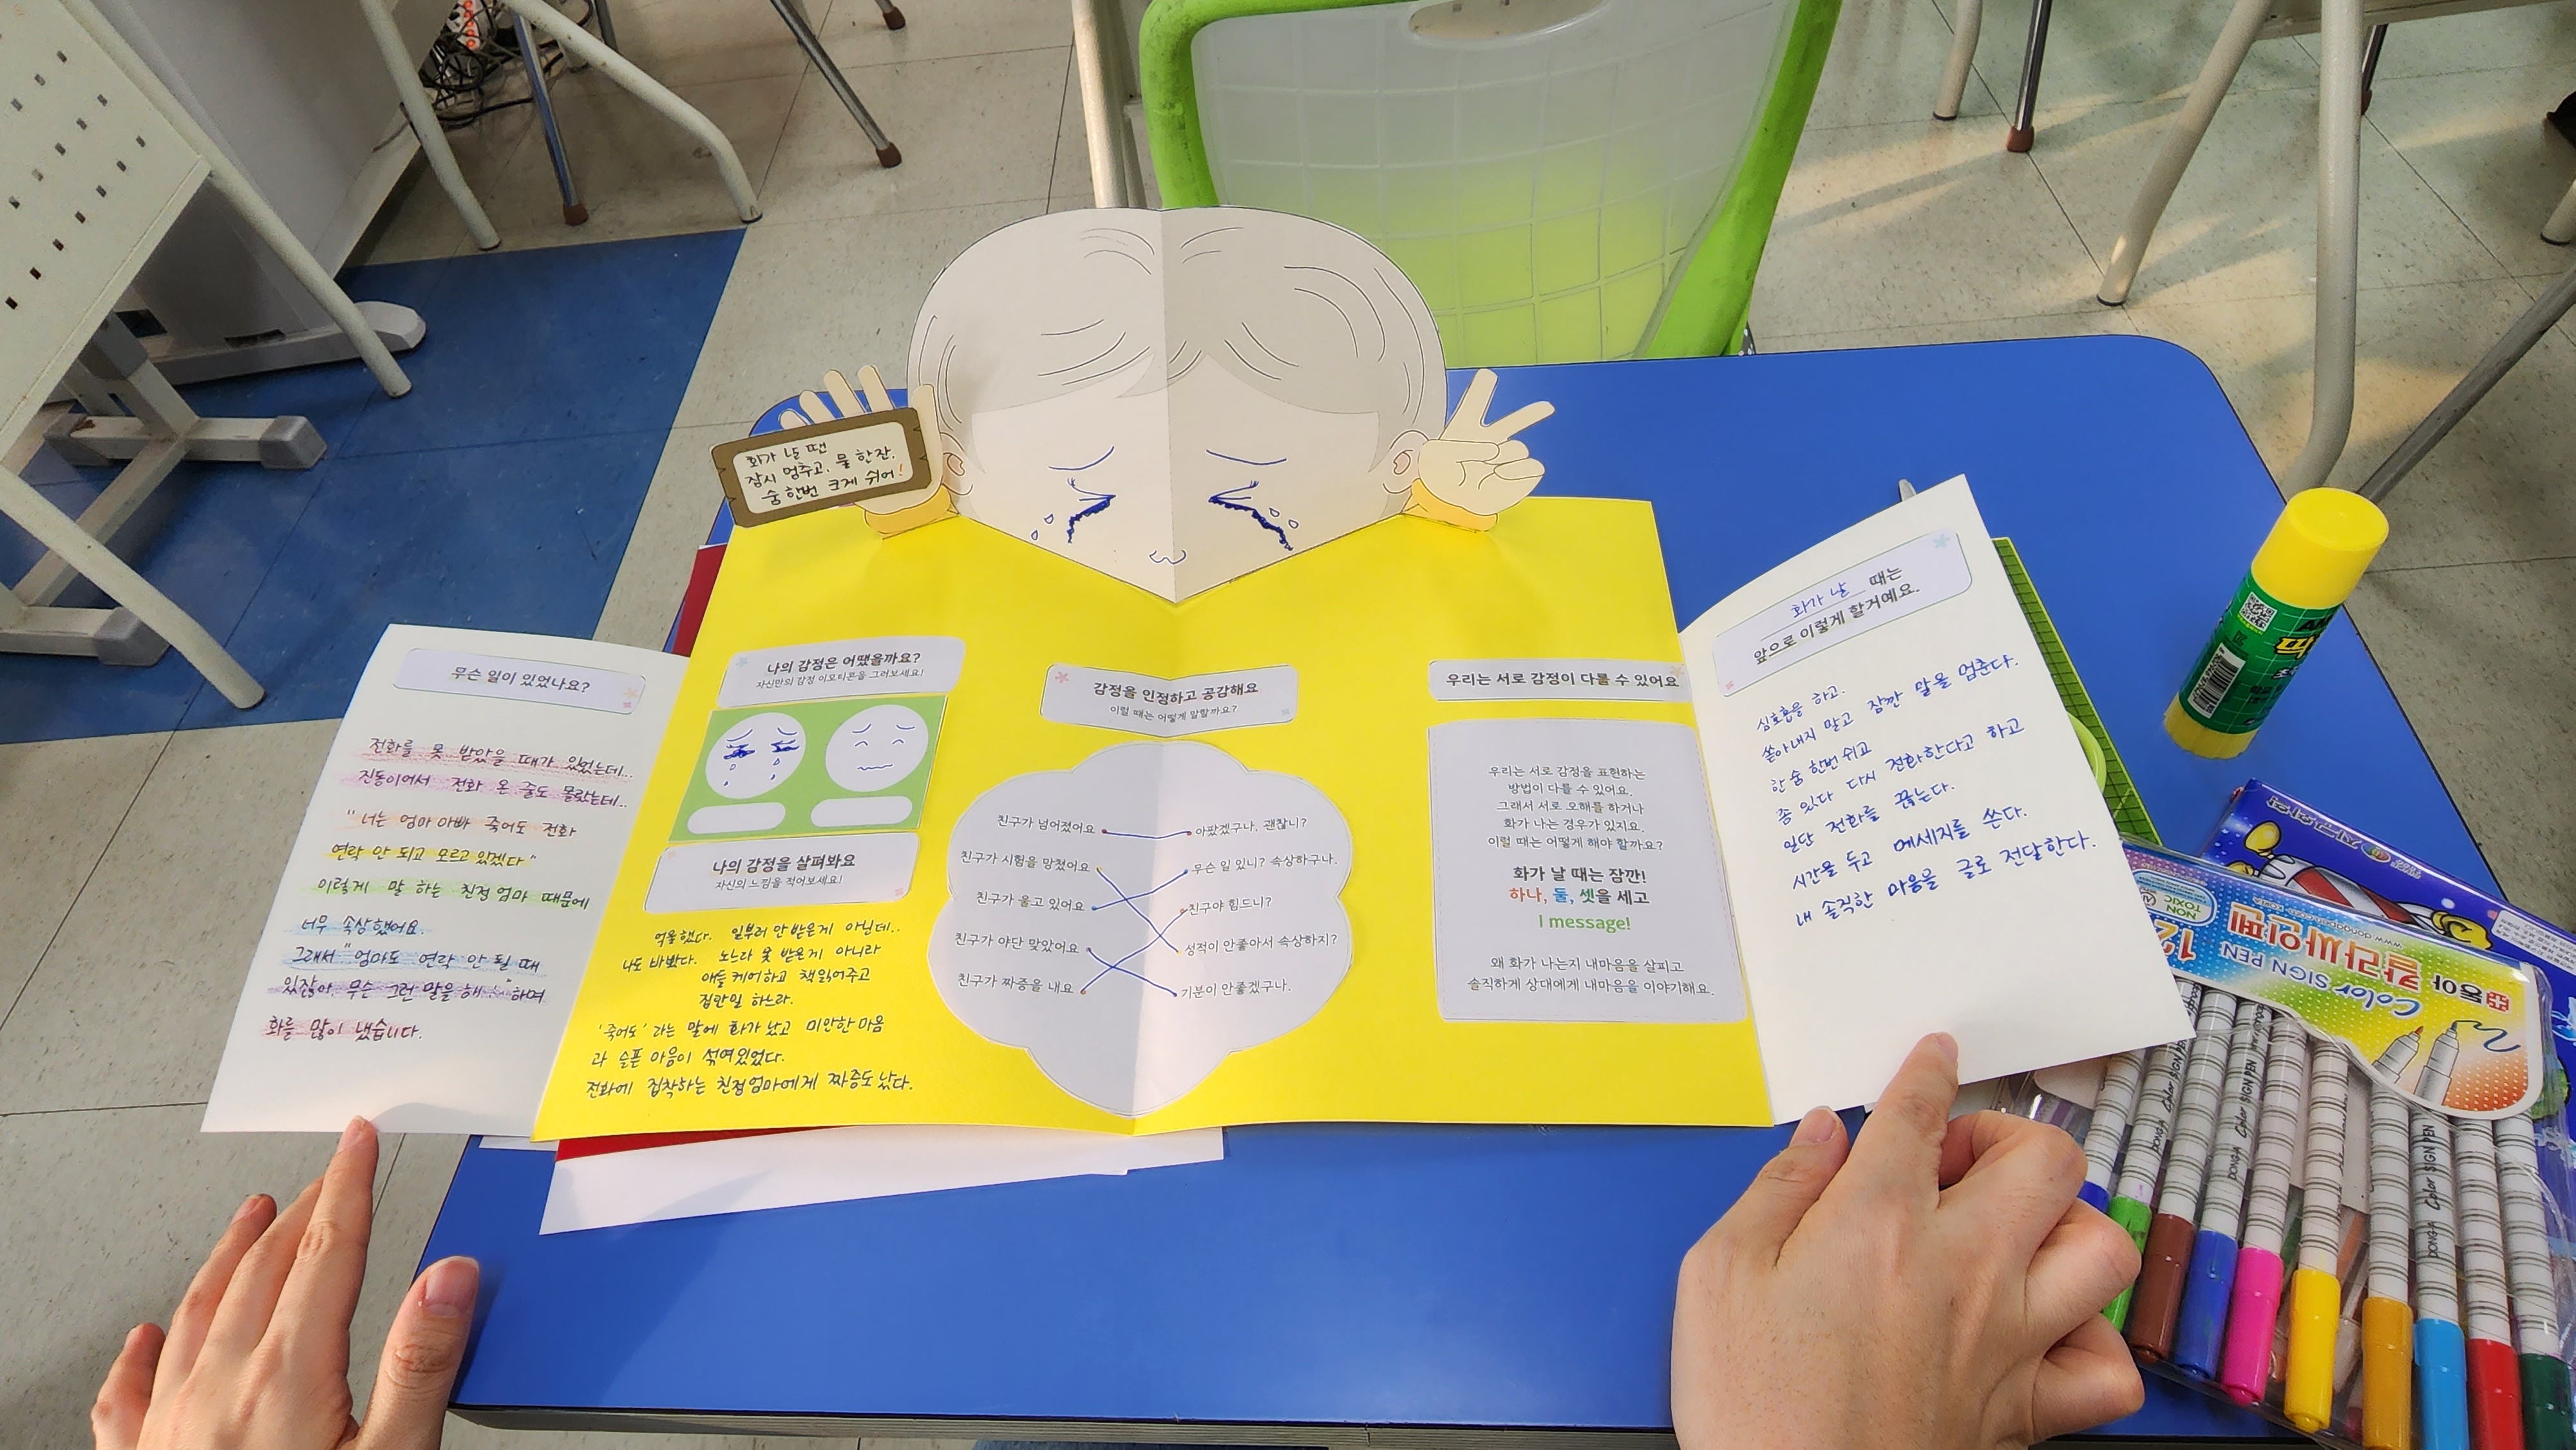 화가 날 땐
잠시 멈추고. 물 한잔.
숨 한번 크게 쉬어!
무슨 일이 있었나요?
전화를 못 받았을 때가 있었는데...
진동이어서 전화 온 줄도 몰랐는데..
"너는 엄마 아빠 죽어도 전화
연락 안 되고 모르고 있겠다"
이렇게 말 하는 친정 엄마 때문에
너무 속상했어요.
그래서 "엄마도 연락 안 될 때
있잖아. 무슨 그런 말을 해" 하며
화를 많이 냈습니다.
나의 감정은 어땠을까요?
자신만의 감정 이모티콘을 그려보세요!
나의 감정을 살펴봐요
자신의 느낌을 적어보세요!
억울했다. 일부러 안 받은게 아닌데..
나도 바빴다. 노느라 못 받은게 아니라
애들 케어하고 책읽어주고
집안일 하느라.
'죽어도' 라는 말에 화가 났고 미안한 마음
과 슬픈 마음이 섞여있었다.
전화에 집착하는 친정엄마에게 짜증도 났다.
감정을 인정하고 공감해요
이럴 때는 어떻게 말할까요?
친구가 넘어졌어요 아팠겠구나, 괜찮니?
친구가 시험을 망쳤어요 무슨 일 있니? 속상하구나.
친구가 울고 있어요 친구야 힘드니?
친구가 야단 맞았어요 성적이 안좋아서 속상하지?
친구가 짜증을 내요 기분이 안좋겠구나.
우리는 서로 감정이 다룰 수 있어요
우리는 서로 감정을 표현하는
방법이 다를 수 있어요.
그래서 서로 오해를 하거나
화가 나는 경우가 있지요.
이럴 때는 어떻게 해야 할까요?
화가 날 때는 잠깐!
하나, 둘, 셋을 세고
I message!
왜 화가 나는지 내마음을 살피고
솔직하게 상대에게 내마음을 이야기해요.
화가 날 때는
앞으로 이렇게 할거예요.
심호흡을 하고.
쏟아내지 말고 잠깐 말을 멈춘다.
한숨 한번 쉬고
좀 있다 다시 전화한다고 하고
일단 전화를 끊는다.
시간을 두고 메세지를 쓴다.
내 솔직한 마음을 글로 전달한다.
동아
칼라싸인펜
Color SIGN PEN
12
NON
TOXIC
DONG-A Color SIGN PEN
DONG-A Color SIGN PEN
DONG-A Color SIGN PEN